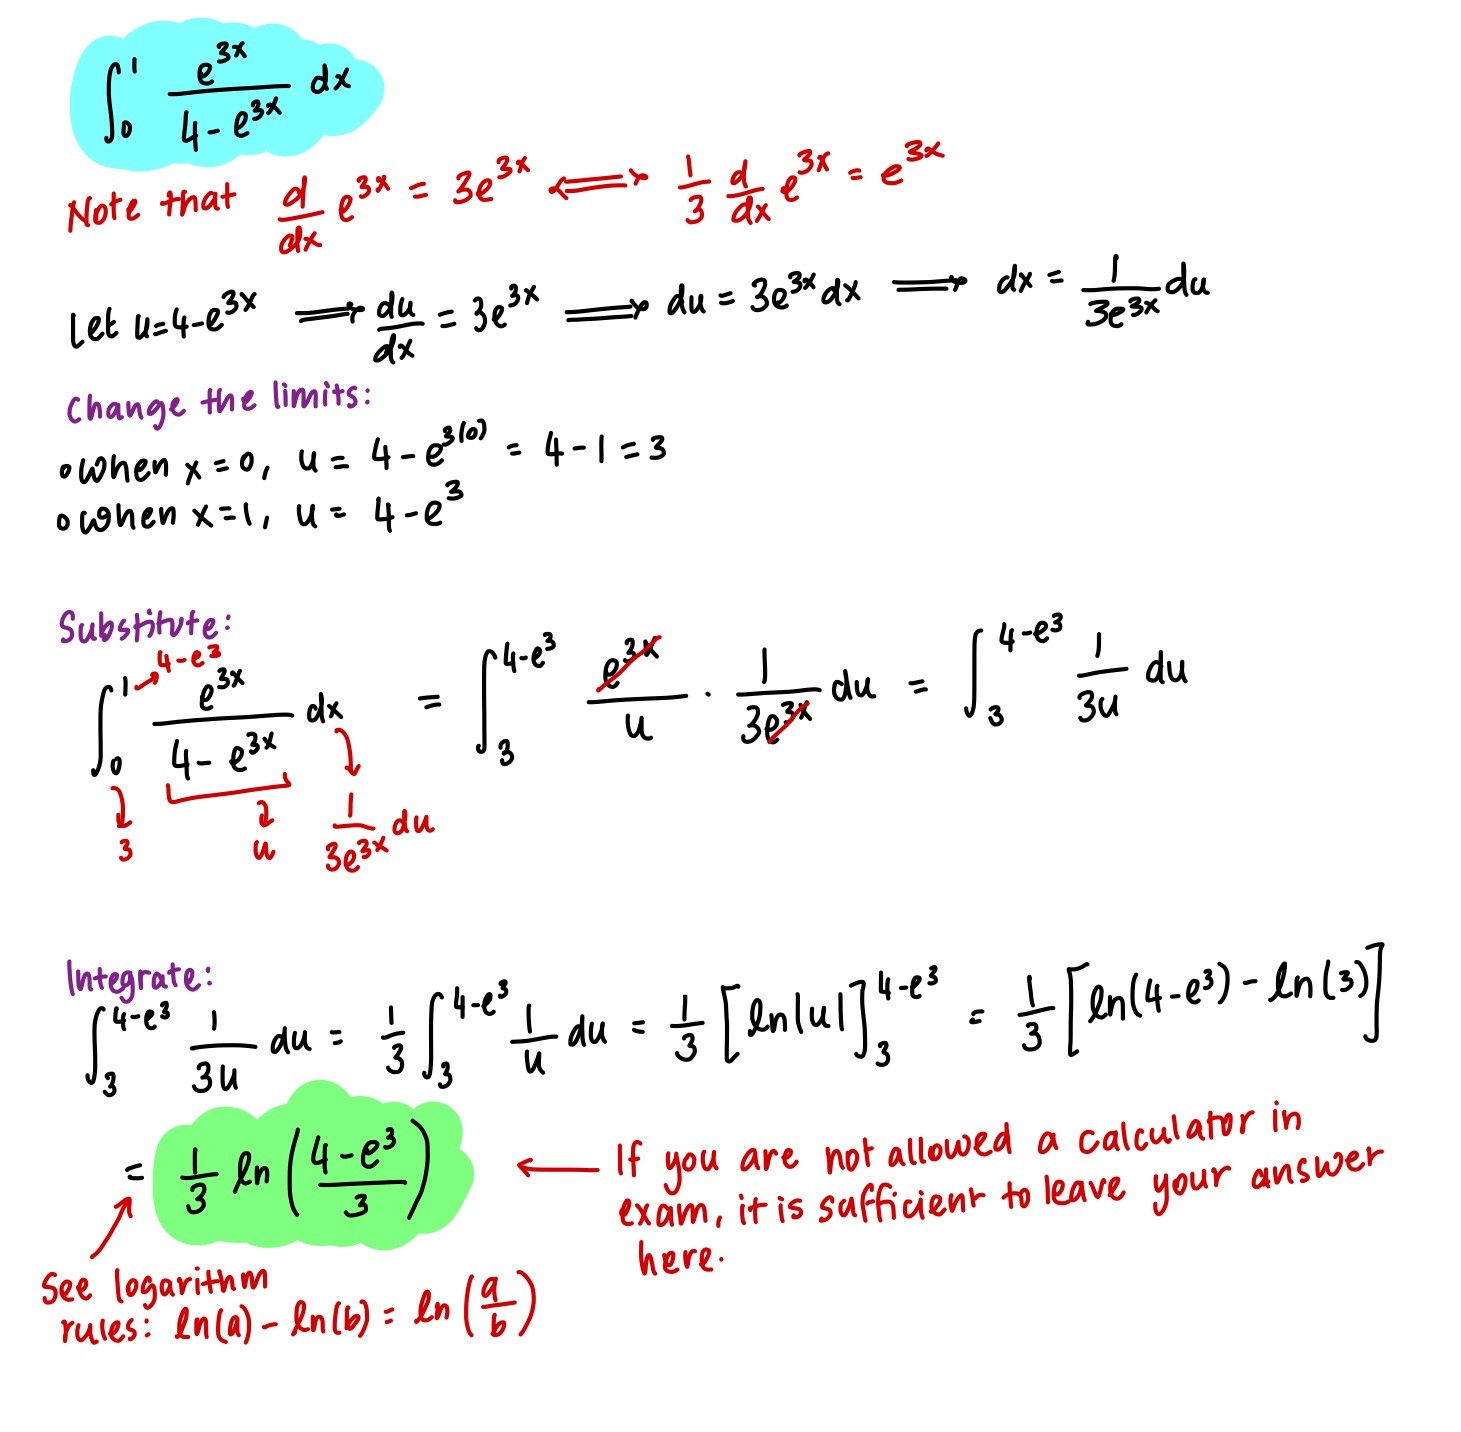 ∫₀¹ e^{3x}/(4-e^{3x}) dx
Note that d/dx e^{3x} = 3e^{3x} ⟺ 1/3 d/dx e^{3x} = e^{3x}
Let u=4-e^{3x} ⟹ du/dx = 3e^{3x} ⟹ du = 3e^{3x}dx ⟹ dx = 1/(3e^{3x}) du
Change the limits:
•when x=0, u = 4-e^{3(0)} = 4-1=3
•when x=1, u = 4-e^3
Substitute:
∫₀¹ e^{3x}/(4-e^{3x}) dx = ∫₃^{4-e^3} e^{3x}/u · 1/(3e^{3x}) du = ∫₃^{4-e^3} 1/(3u) du
4-e^3
3 u 1/(3e^{3x}) du
Integrate:
∫₃^{4-e^3} 1/(3u) du = 1/3 ∫₃^{4-e^3} 1/u du = 1/3 [ln|u|]₃^{4-e^3} = 1/3 [ln(4-e^3) - ln(3)]
= 1/3 ln((4-e^3)/3)
If you are not allowed a calculator in
exam, it is sufficient to leave your answer
here.
See logarithm
rules: ln(a) - ln(b) = ln(a/b)